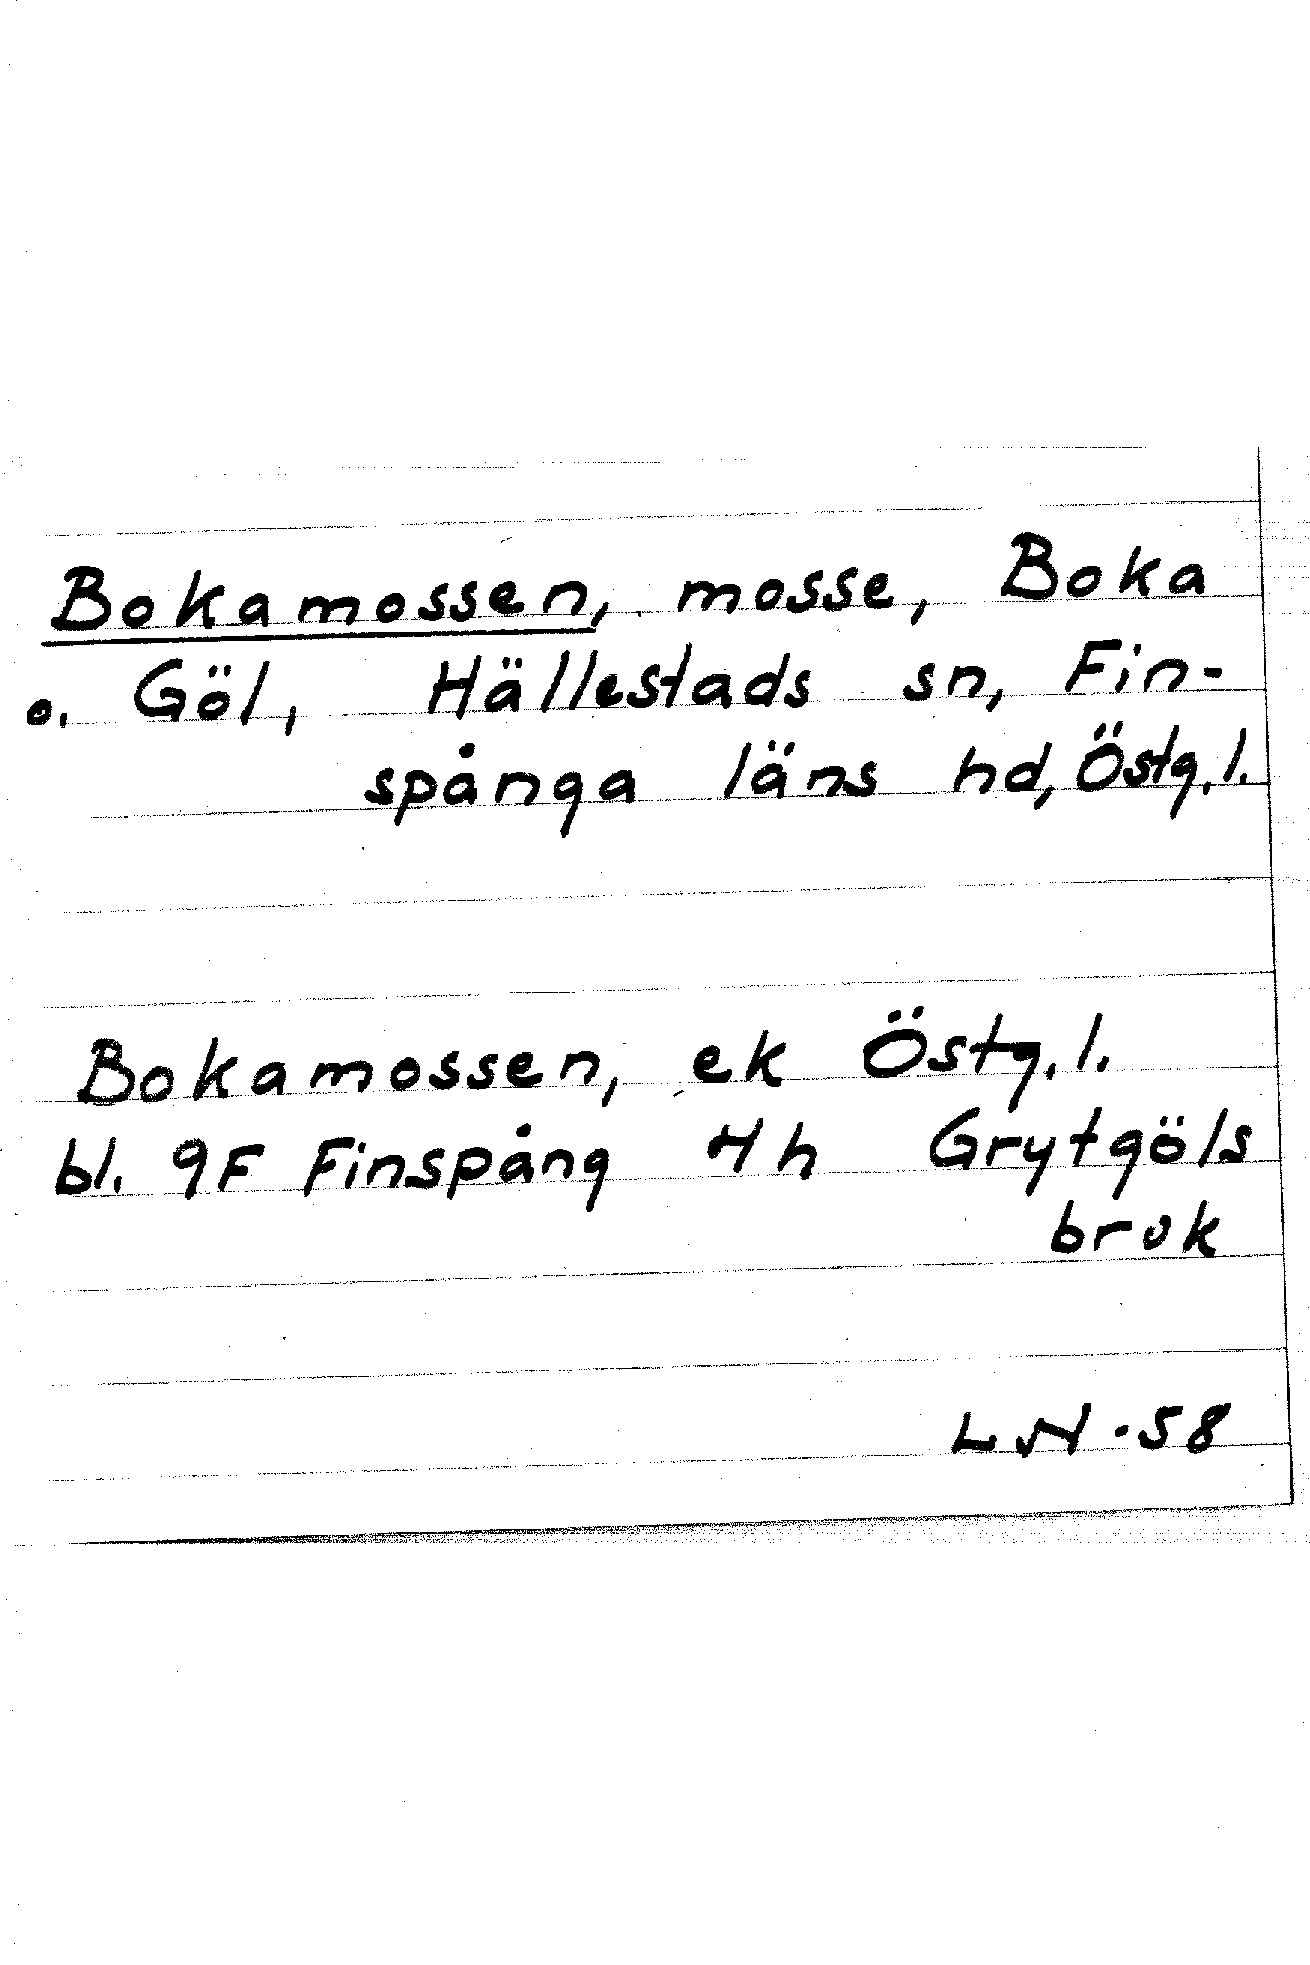 Bokamossen, mosse, Boka
o. Göl, Hällestads sn, Fin-
spånga läns hd, Östg.l.
Bokamossen, ek Östg.l.
bl. 9F Finspång 4h Grytgöls
bruk
LN -58